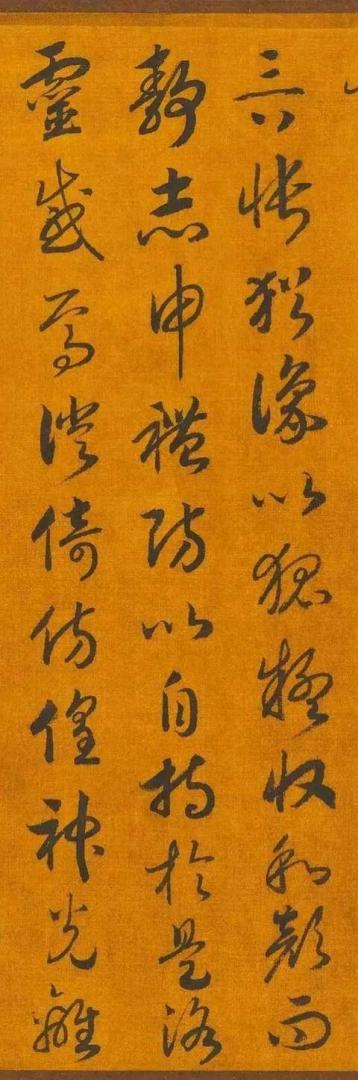 言兮悵猶豫以狐疑收和顏而
靜志申禮防以自持於是洛
靈感焉徙倚仿偟神光離